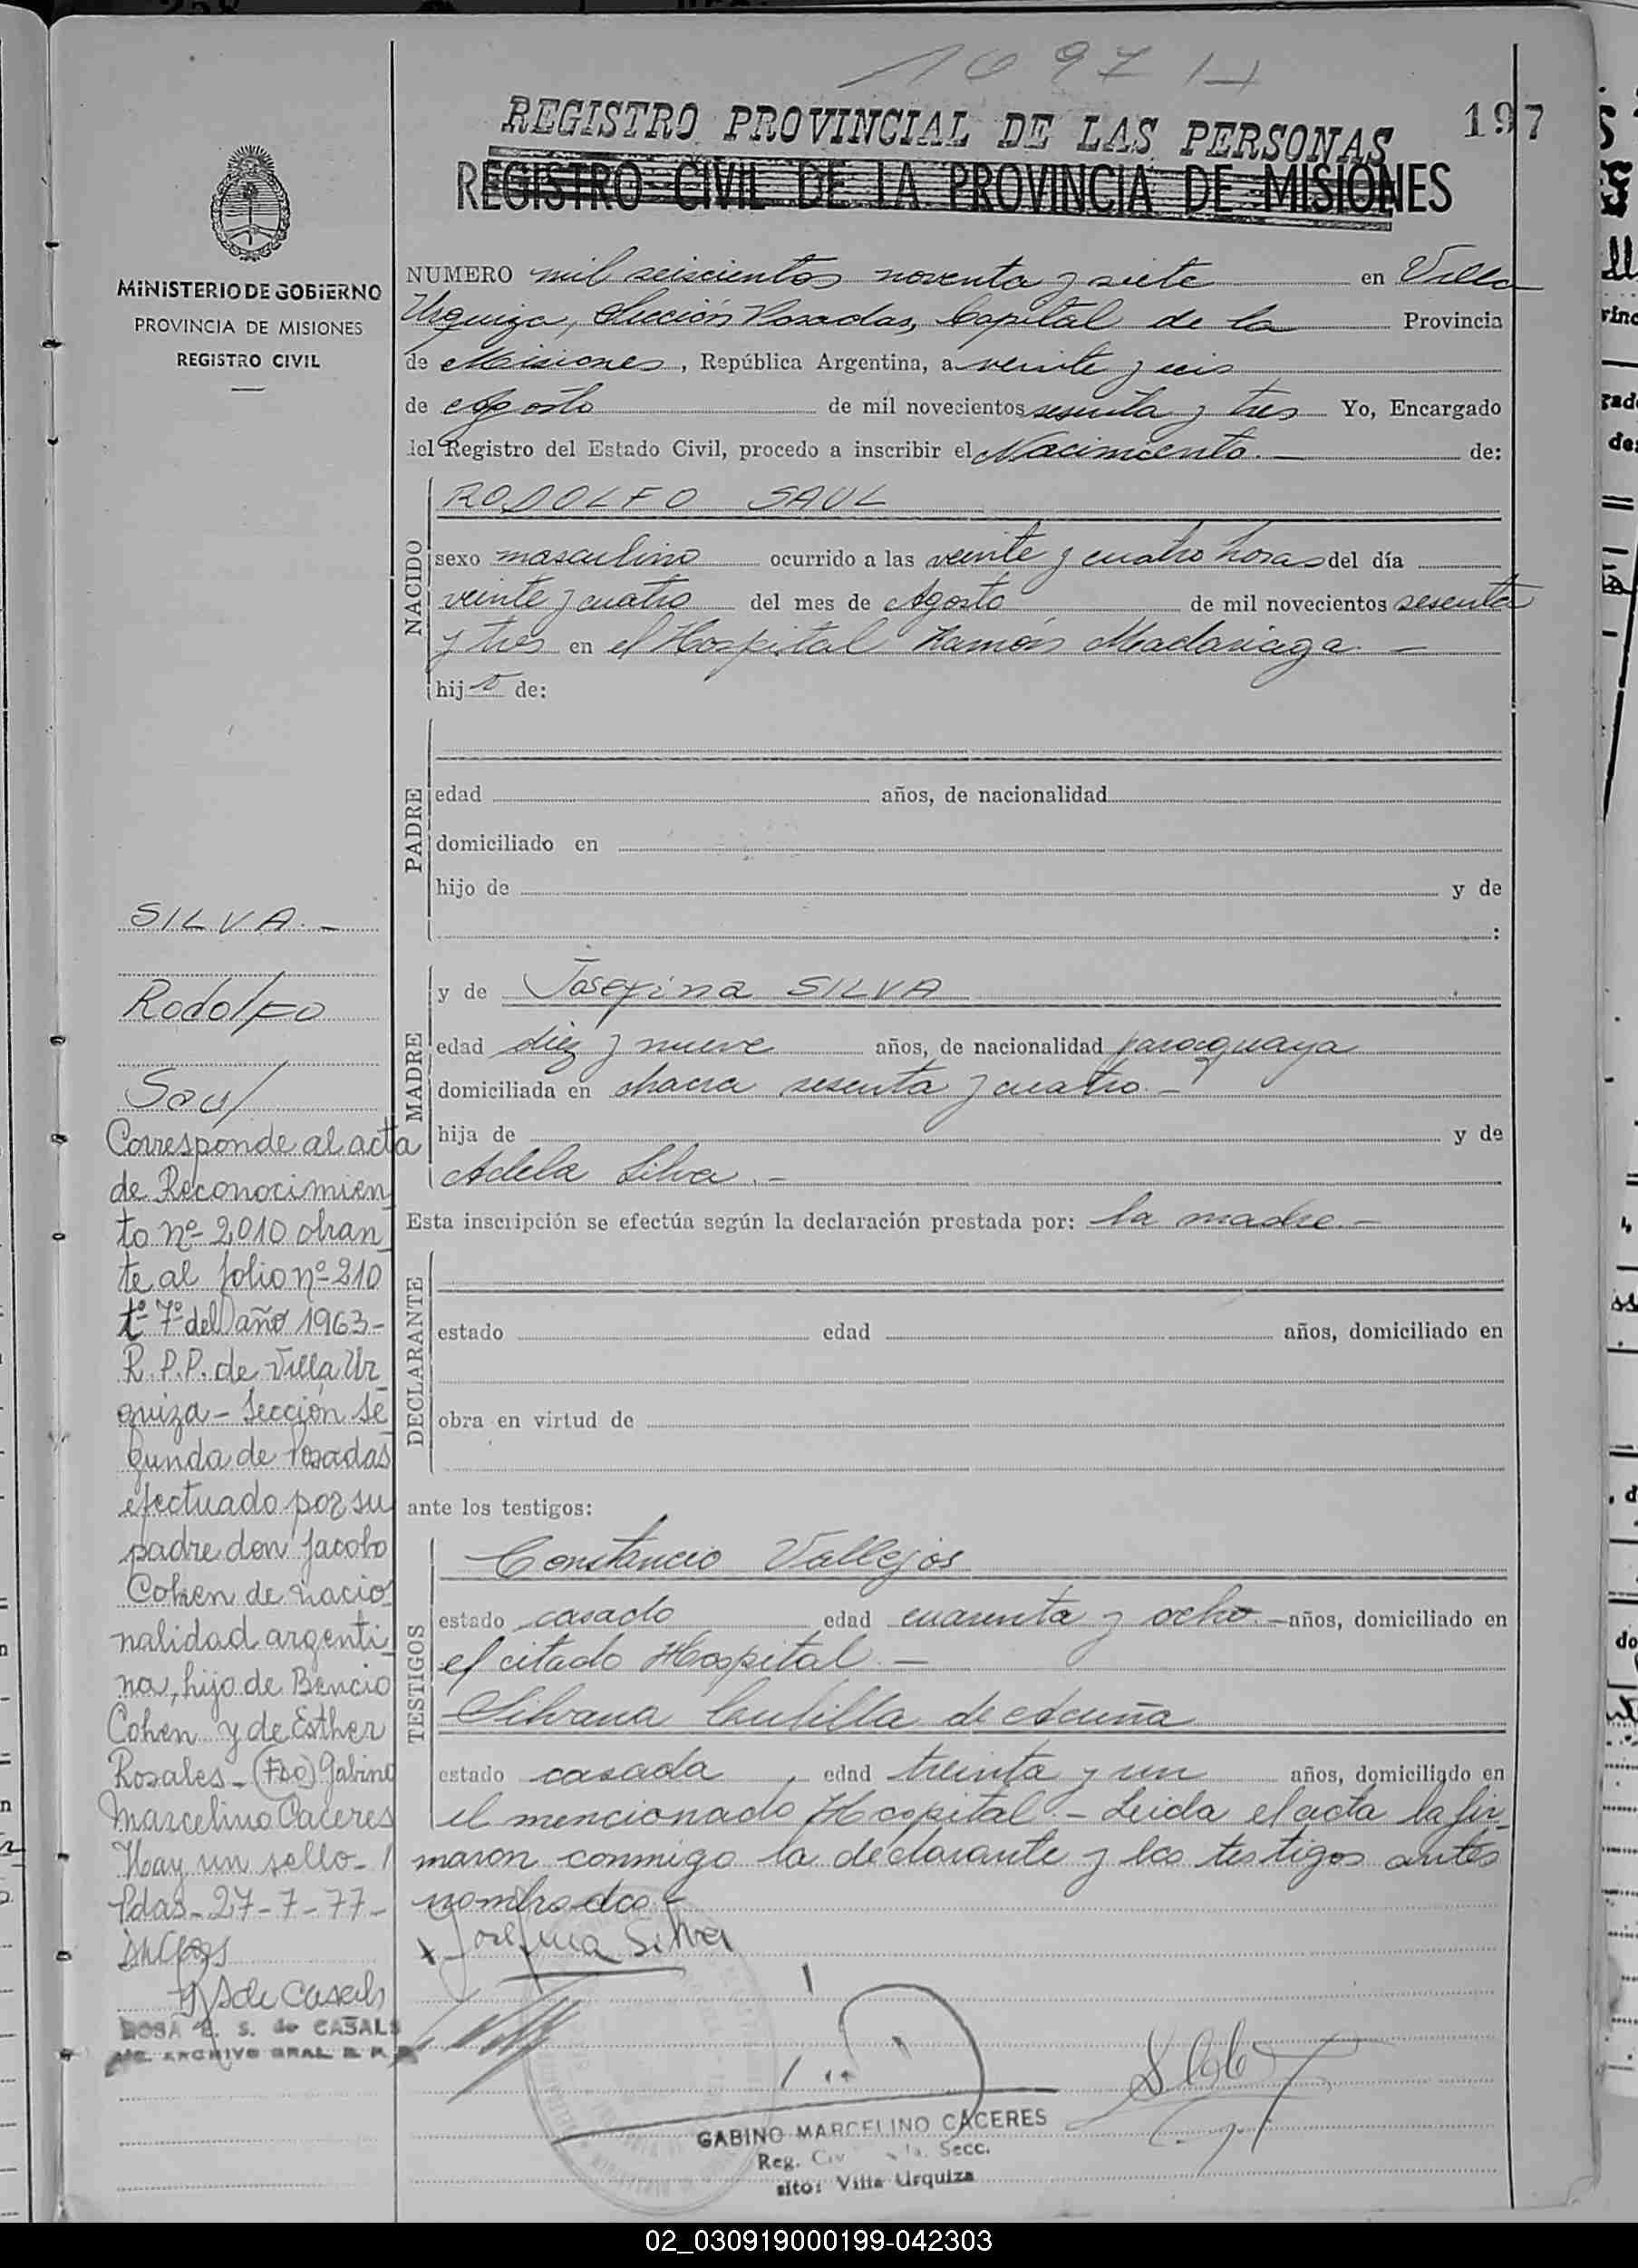 1697
REGISTRO PROVINCIAL DE LAS PERSONAS
197
REGISTRO CIVIL DE LA PROVINCIA DE MISIONES
MINISTERIO DE GOBIERNO
PROVINCIA DE MISIONES
REGISTRO CIVIL
NUMERO mil seiscientos noventa y siete en Villa
Urquiza, Sección Posadas, Capital de la Provincia
de Misiones, República Argentina, a veinte y seis
de Agosto de mil novecientos sesenta y tres Yo, Encargado
del Registro del Estado Civil, procedo a inscribir el Nacimiento.— de:
NACIDO
RODOLFO SAUL
sexo masculino ocurrido a las veinte y cuatro horas del día
veinte y cuatro del mes de Agosto de mil novecientos sesenta
y tres en el Hospital Ramón Madariaga.—
hijo de:
PADRE
edad años, de nacionalidad
domiciliado en
hijo de y de
:
MADRE
y de Josefina SILVA
edad diez y nueve años, de nacionalidad paraguaya
domiciliada en chacra sesenta y cuatro.—
hija de y de
Adela Silva.—
Esta inscripción se efectúa según la declaración prestada por: la madre.—
DECLARANTE
estado edad años, domiciliado en
obra en virtud de
ante los testigos:
TESTIGOS
Constancio Vallejos
estado casado edad cuarenta y ocho.— años, domiciliado en
el citado Hospital.—
Silvana de Acuña
estado casada, edad treinta y un años, domiciliado en
el mencionado Hospital.— Leida el acta la fir-
maron conmigo la declarante y los testigos antes
nombrados.—
x Josefina Silva
GABINO MARCELINO CACERES
Reg. Civ Secc.
sito: Villa Urquiza
SILVA.—
Rodolfo
Saul
Corresponde al acta
de Reconocimien
to nº 2010 obran
te al folio nº 210
tº 7º del año 1963-
R.P.P. de Villa Ur
quiza - Sección Se
gunda de Posadas
efectuado por su
padre don Jacobo
Cohen de nacio
nalidad argenti
na, hijo de Bencio
Cohen y de Esther
Rosales - (FDO) Gabino
Marcelino Caceres
Hay un sello-
Pdas - 27-7-77-
de Casals
ROSA E. S. de CASALS
ARCHIVO GRAL R. P. P.
02_030919000199-042303